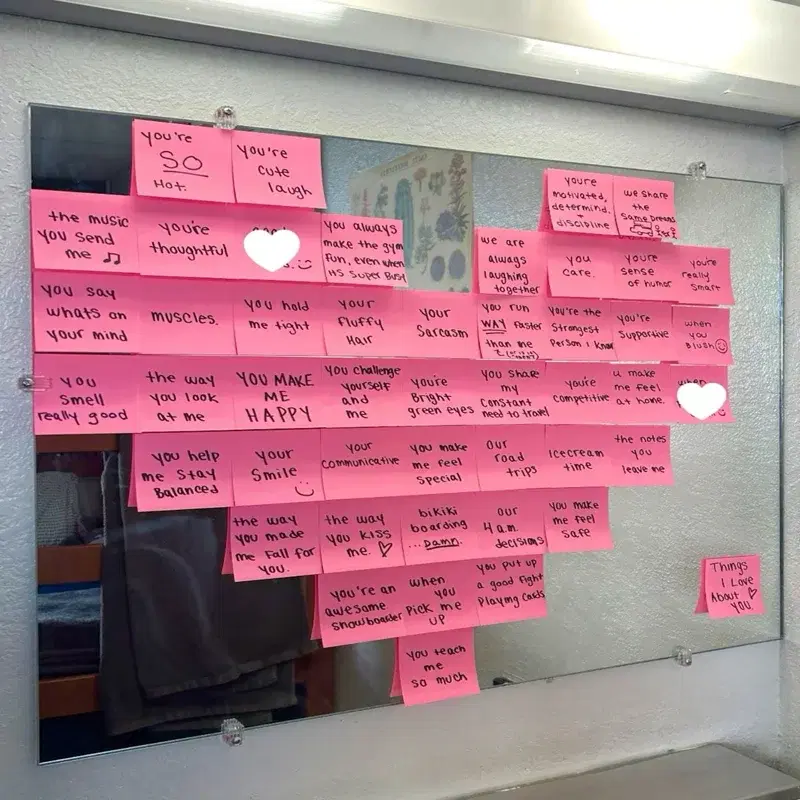 you're
SO
HOT.
you're
cute
laugh
youre
motivated,
determind.
+
discipline
we share
the
same Dreams
the music
you send
me ♫
you're
thoughtful
you always
make the gym
fun, even when
its super Busy
we are
always
laughing
together
you
care.
youre
sense
of humor
you're
really
smart
you say
whats on
your mind
muscles.
you hold
me tight
your
fluffy
Hair
your
Sarcasm
you run
WAY faster
than me
you're the
Strongest
Person I know
you're
Supportive
when
you
Blush ☺
you
smell
really good
the way
you look
at me
YOU MAKE
ME
HAPPY
you challenge
yourself
and
me
you're
Bright
green eyes
you share
my
constant
need to travel
you're
competitive
u make
me feel
at home.
when
you help
me stay
Balanced
your
Smile ☺
your
communicative
you make
me feel
special
our
road
trips
Icecream
time
the notes
you
leave me
the way
you made
me fall for
you.
the way
you kiss
me. ♡
bikiki
boarding
...damn.
our
4 a.m.
decisions
you make
me feel
safe
you're an
awesome
snowboarder
when
you
pick me
up
you put up
a good fight
playing cards
you teach
me
so much
Things
I Love
About ♡
you.